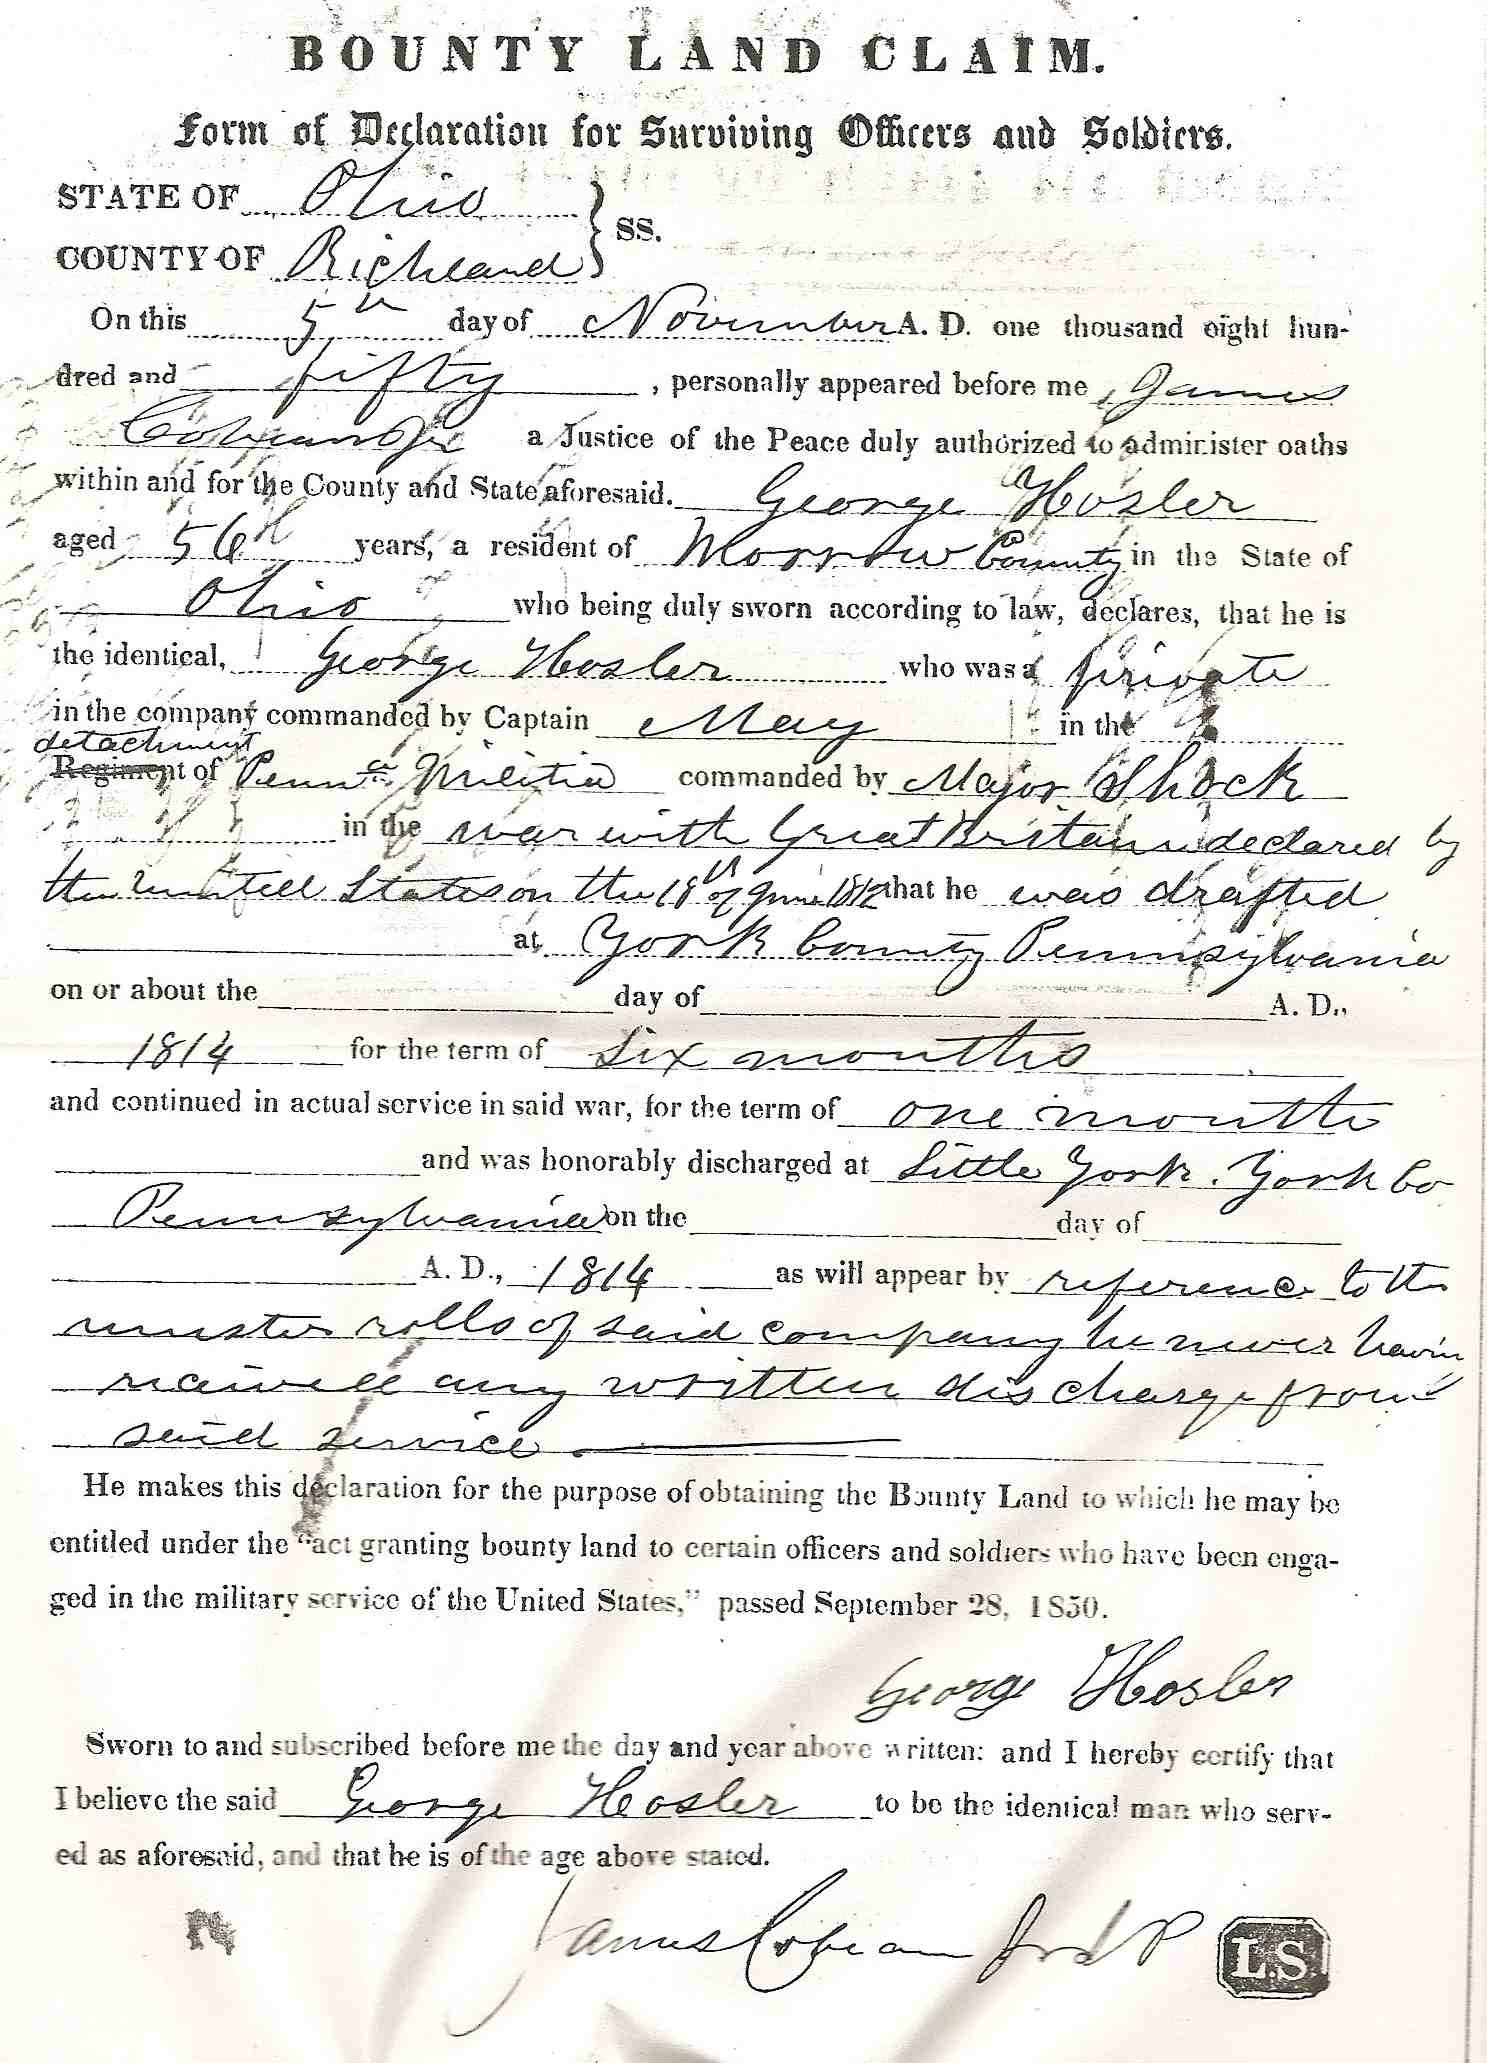 BOUNTY LAND CLAIM.
Form of Declaration for Surviving Officers and Soldiers.
STATE OF Ohio
SS.
COUNTY OF Richland
On this 5th day of November A. D. one thousand eight hun-
dred and fifty, personally appeared before me James
a Justice of the Peace duly authorized to administer oaths
within and for the County and State aforesaid. George Hosler
aged 56 years, a resident of Morrow County in the State of
Ohio who being duly sworn according to law, declares, that he is
the identical, George Hosler who was a private
in the company commanded by Captain May in the
detachment
Regiment of Penna Militia commanded by Major Shock
in the war with Great Britain declared by
the United States on the 18th of June 1812 that he was drafted
at York County Pennsylvania
on or about the day of A. D.,
1814 for the term of Six months
and continued in actual service in said war, for the term of one month
and was honorably discharged at Little York. York Co
Pennsylvania on the day of
A. D., 1814 as will appear by reference to the
muster rolls of said company he never having
received any written discharge from
said service
He makes this declaration for the purpose of obtaining the Bounty Land to which he may be
entitled under the "act granting bounty land to certain officers and soldiers who have been enga-
ged in the military service of the United States," passed September 28, 1850.
George Hosler
Sworn to and subscribed before me the day and year above written: and I hereby certify that
I believe the said George Hosler to be the identical man who serv-
ed as aforesaid, and that he is of the age above stated.
James J P
L.S